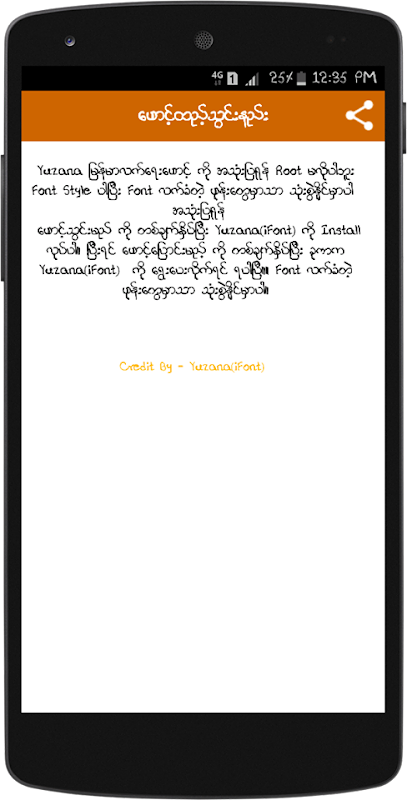 4G 1 25% 12:35 PM
ဖောင့်ထည့်သွင်းနည်း
Yuzana မြန်မာလက်ရေးဖောင့် ကို အသုံးပြုရန် Root မလိုပါဘူး
Font Style ပါပြီး Font လက်ခံတဲ့ ဖုန်းတွေမှာသာ သုံးစွဲနိုင်မှာပါ
အသုံးပြုရန်
ဖောင့်သွင်းမည် ကို တစ်ချက်နှိပ်ပြီး Yuzana(iFont) ကို Install
လုပ်ပါ။ ပြီးရင် ဖောင့်ပြောင်းမည့် ကို တစ်ချက်နှိပ်ပြီး ခုကက
Yuzana(iFont) ကို ရွေးပေးလိုက်ရင် ရပါပြီ။ Font လက်ခံတဲ့
ဖုန်းတွေမှာသာ သုံးစွဲနိုင်မှာပါ။
Credit By - Yuzana(iFont)